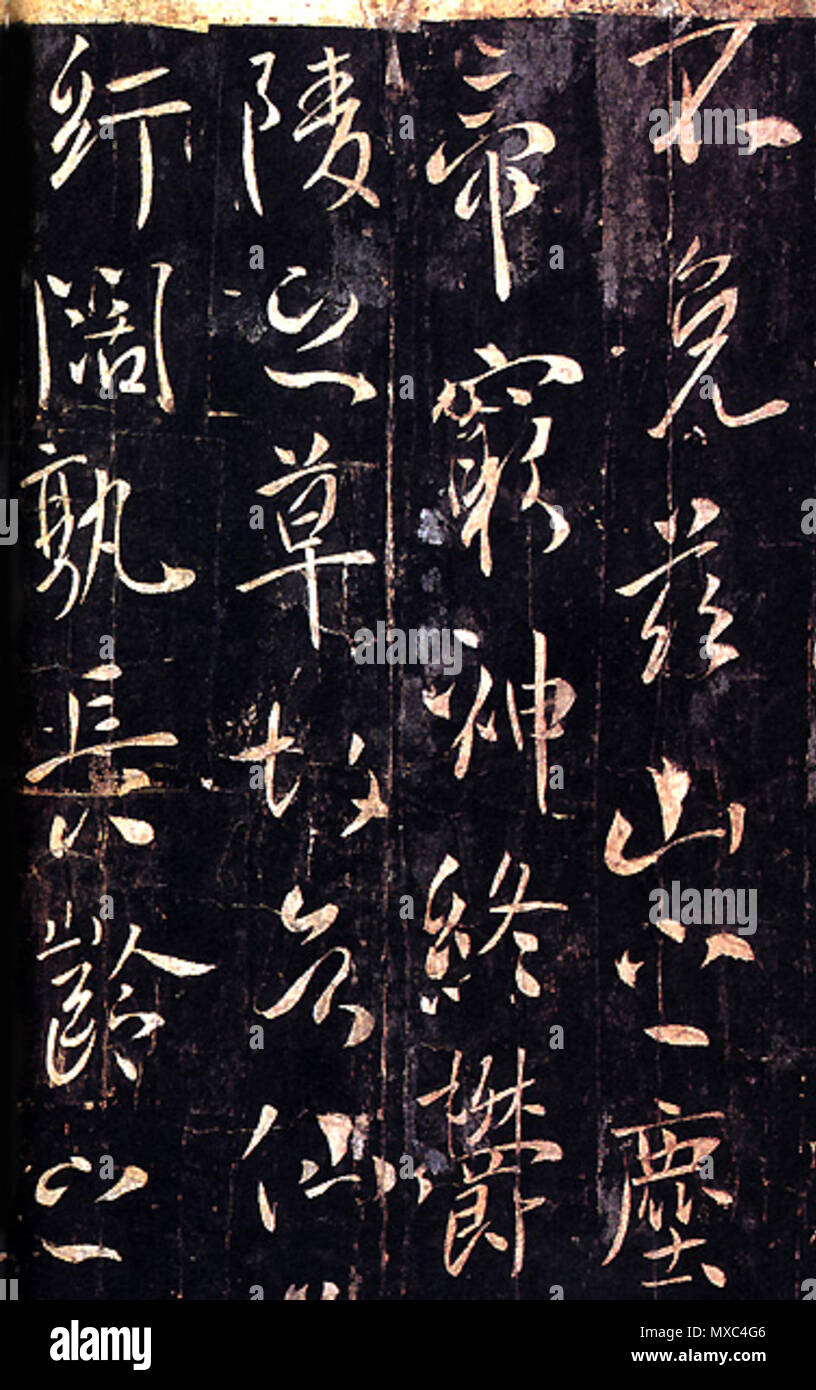 不免茲山之塵
帝窮神終鬱
陵之草故知仙
紆闊孰長齡之
alamy
Image ID: MXC4G6
www.alamy.com